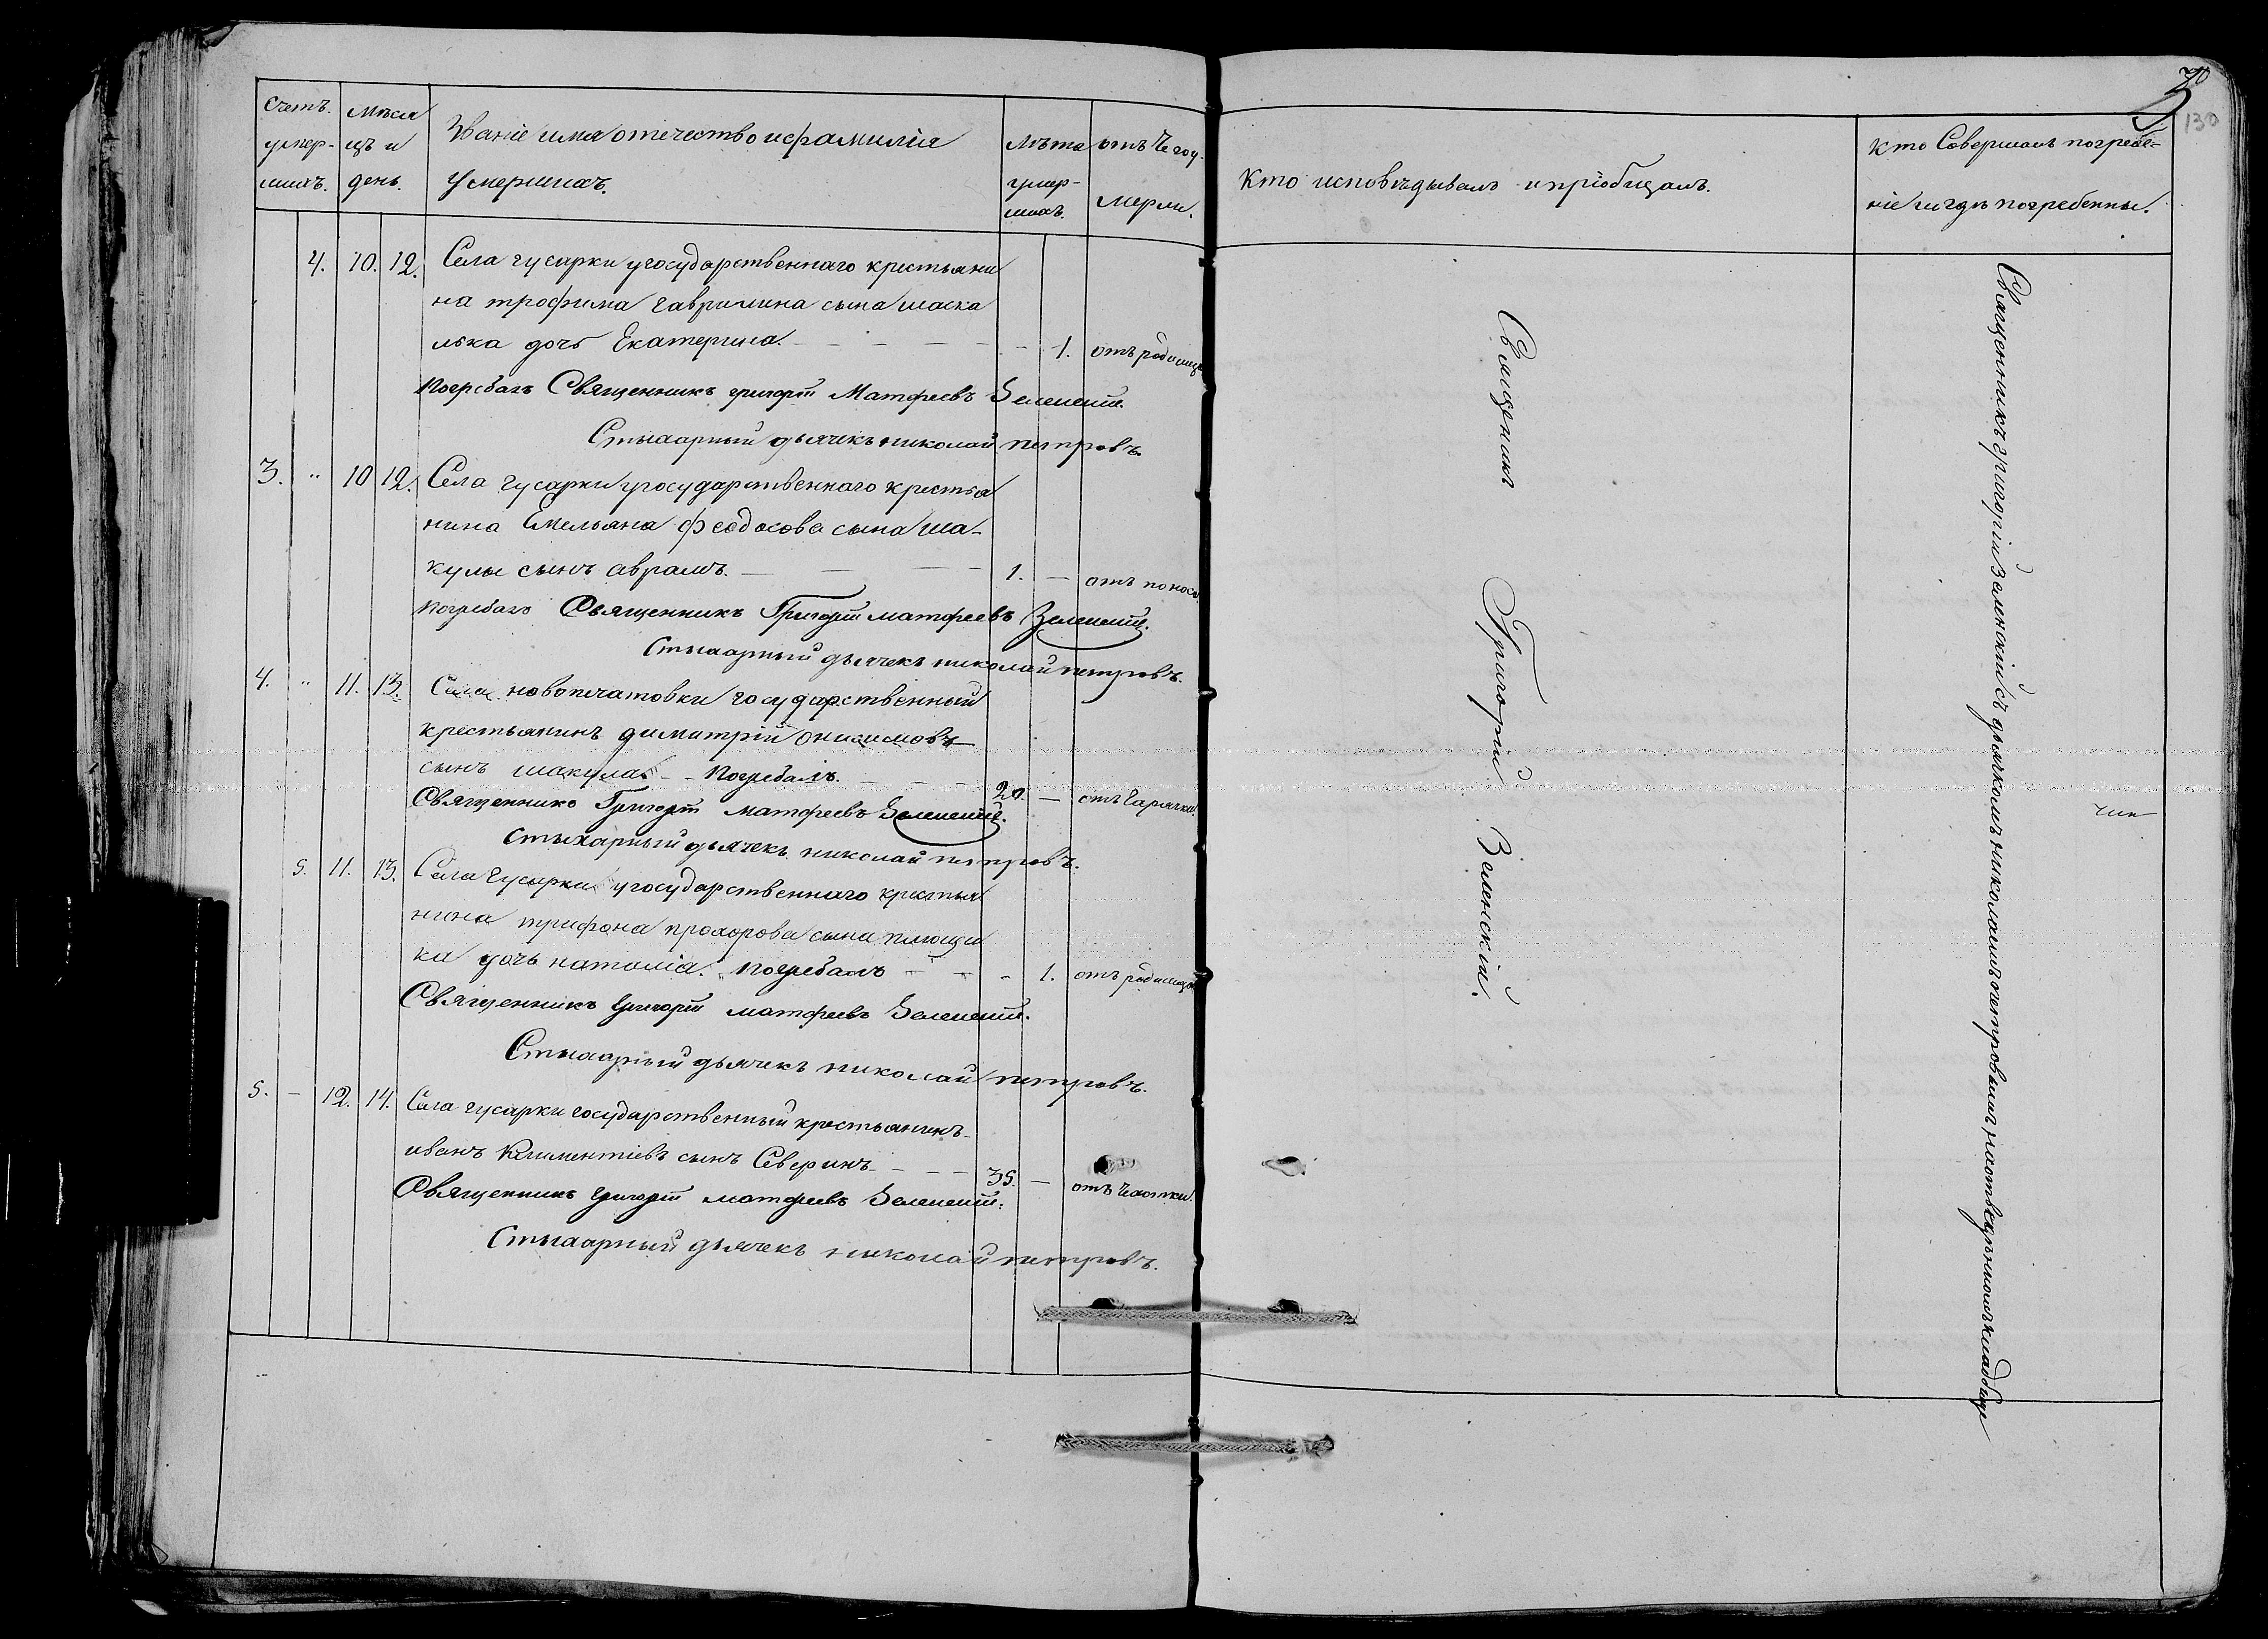 Счетъ умер-шихъ.
Мѣсяцъ и день.
Званіе имя отечество и фамилія
Умершихъ.
Лѣта умер-шихъ.
отъ Чего у-
мерли.
Кто исповѣдывалъ и пріобщалъ.
кто Совершалъ погребе-
ніе и гдѣ погребенны.
130
4. 10. 12. Села гусарки у государственнаго крестьяни
на трофима гаврилина сына маска
лька дочь Екатерина. 1. отъ родимца
Погребалъ Священникъ григорій Матфеевъ Зеленскій.
Стихарный дьячекъ николай петровъ.
3. " 10 12. Села гусарки у государственнаго крестья
нина Емельяна феодосова сына ша-
кулы сынъ аврамъ. 1. — отъ поноса
погребалъ Священникъ Григорій матфеевъ Зеленскій.
Стихарный дьячекъ николай петровъ.
4. " 11. 13. Села новопчатовки государственный
крестьянинъ димитрій онисимовъ
сынъ шакула - - Погребалъ. 20. — отъ Гарячки.
Священникъ Григорій матфеевъ Зеленскій.
Стихарный дьячекъ николай петровъ.
5. 11. 13. Села Гусарки у государственнаго крестья
нина трифона прохорова сына плющи
ка дочь наталія. Погребалъ 1. отъ родимца
Священникъ Григорій матфеевъ Зеленскій.
Стихарный дьячекъ николай петровъ.
5. — 12. 14. Села гусарки государственный крестьянинъ
иванъ Климентіевъ сынъ Северинъ 35. — отъ Чахотки.
Священникъ Григорій матфеевъ Зеленскій.
Стихарный дьячекъ николай петровъ.
Священикъ Григорій Зеленскій.
Священникъ григорій Зеленскій съ дьячкомъ николаемъ петровымъ на кладбище